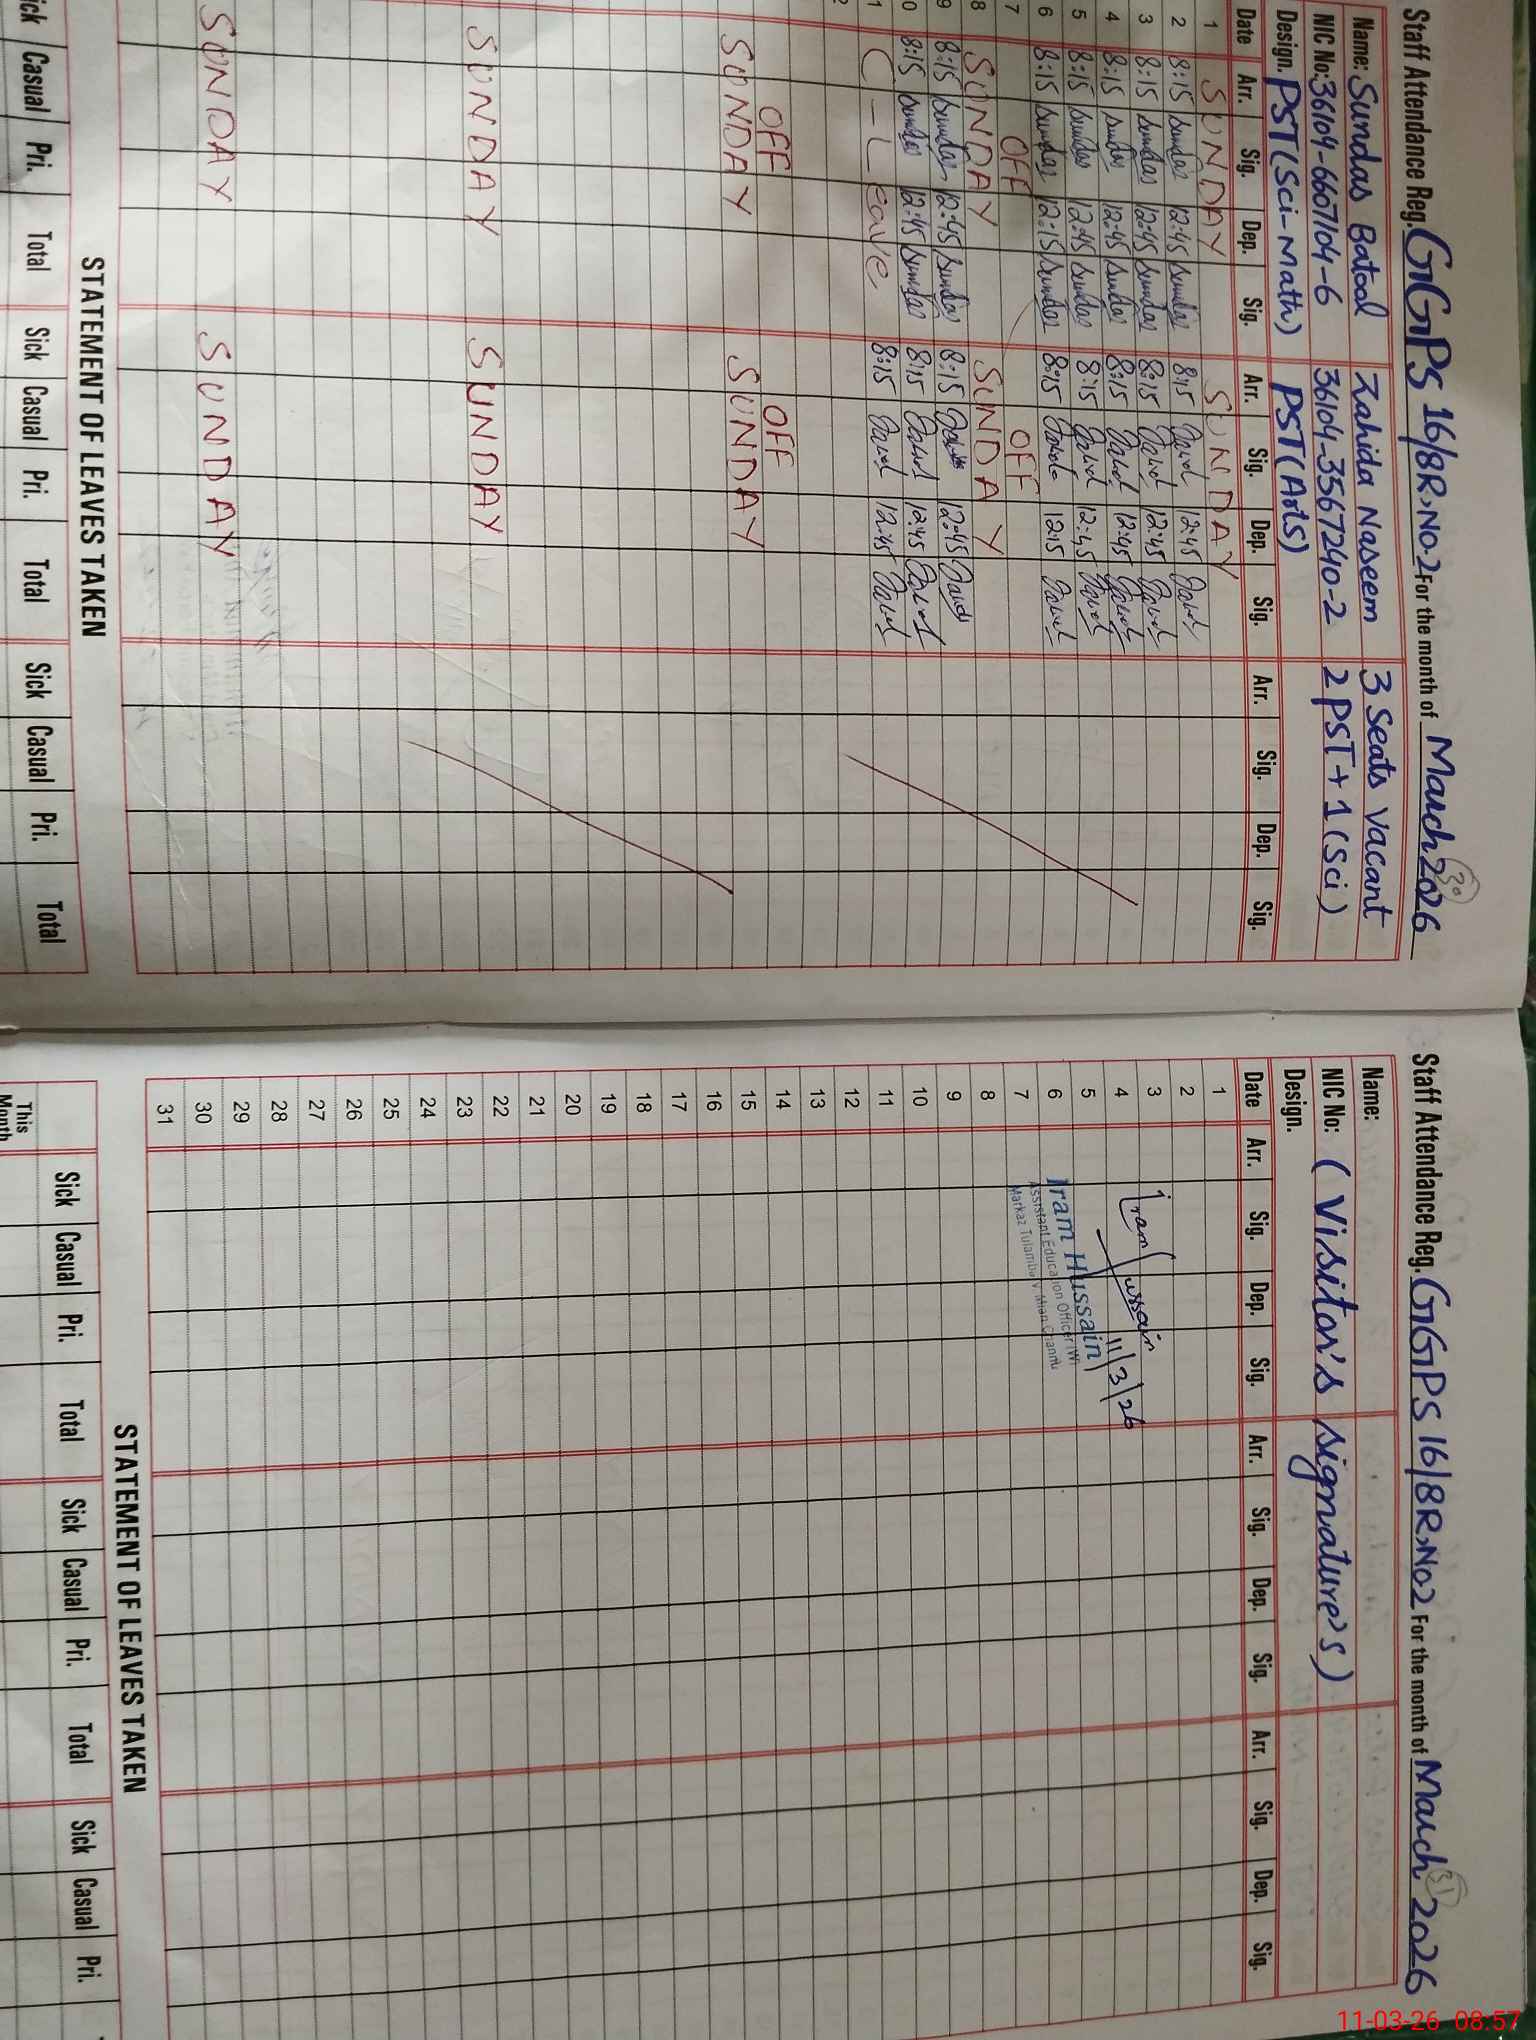 Staff Attendance Reg. GGPS 16/8R, No.2 For the month of March 2026
30
Name: Sundas Batool Zahida Naseem 3 Seats vacant
NIC No: 36104-6607104-6 36104-3567240-2 2 PST + 1 (Sci)
Design. PST (Sci-Math) PST (Arts)
Date Arr. Sig. Dep. Sig. Arr. Sig. Dep. Sig. Arr. Sig. Dep. Sig.
1 SUNDAY SUNDAY
2 8:15 Sundas 12:45 Sundas 8:15 12:45
3 8:15 Sundas 12:45 Sundas 8:15 12:45
4 8:15 Sundas 12:45 Sundas 8:15 12:45
5 8:15 Sundas 12:45 Sundas 8:15 12:45
6 8:15 Sundas 12:15 Sundas 8:15 12:15
7 OFF OFF
8 SUNDAY SUNDAY
9 8:15 Sundas 12:45 Sundas 8:15 12:45
0 8:15 Sundas 12:45 Sundas 8:15 12:45
1 C-Leave 8:15 12:45
2
OFF OFF
SUNDAY SUNDAY
SUNDAY SUNDAY
SUNDAY SUNDAY
STATEMENT OF LEAVES TAKEN
ick Casual Pri. Total Sick Casual Pri. Total Sick Casual Pri. Total
Staff Attendance Reg. GGPS 16/8R, No2 For the month of March 2026
31
Name:
NIC No: (Visitor's signature's)
Design.
Date Arr. Sig. Dep. Sig. Arr. Sig. Dep. Sig. Arr. Sig. Dep. Sig.
1
2
3
4
5
6
7
8
9
10
11
12
13
14
15
16
17
18
19
20
21
22
23
24
25
26
27
28
29
30
31
Iram Hussain
11/3/26
Iram Hussain
Assistant Education Officer (W)
Markaz Tulamba V Mian Channu
STATEMENT OF LEAVES TAKEN
Sick Casual Pri. Total Sick Casual Pri. Total Sick Casual Pri.
This
Month
11-03-26 08:57